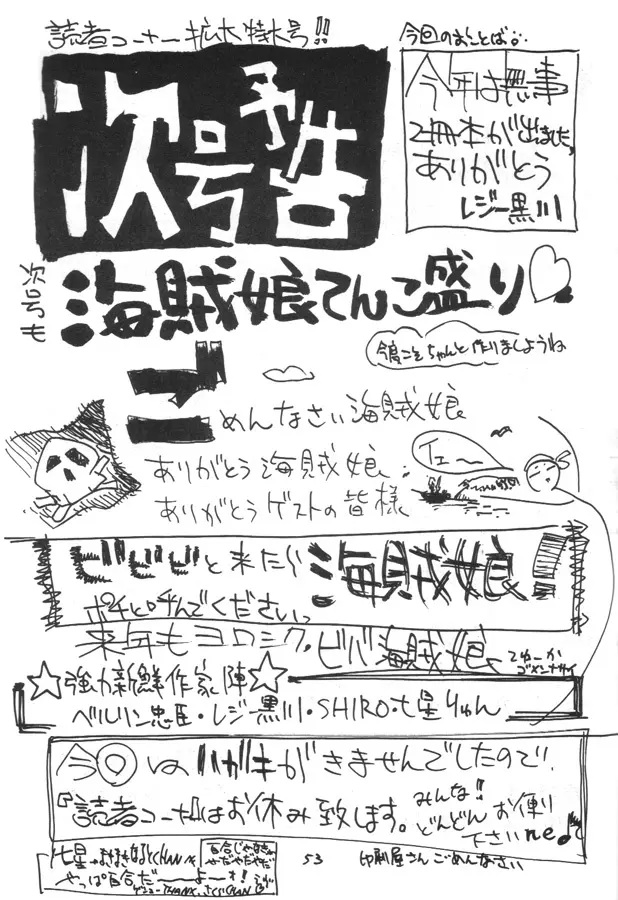 読者コーナー拡大特大号!!
次号予告
今回のまことば
今年は無事
2冊本が出ました。
ありがとう
レジー黒川
次号も
海賊娘てんこ盛り♡
今度こそちゃんと作りましょうね
ごめんなさい海賊娘
ありがとう海賊娘
ありがとうゲストの皆様
イエ〜
ビビビと来たら海賊娘!
ポチと呼んでください。
来年もヨロシク。ビバ海賊娘
てゆーか
ゴメンナサイ
☆強力新鮮作家陣☆
ベルリン忠臣・レジー黒川・SHIRO・七星りゅん
今回はハガキがきませんでしたので、
『読者コーナー』はお休み致します。
みんな!!
どんどんお便り
下さいne♪
やっぱ百合だ〜よー!
53
印刷屋さんごめんなさい